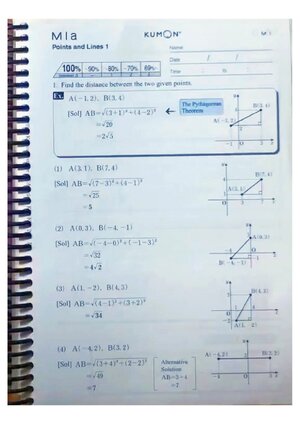 M1a
KUMON
Points and Lines 1
Name
Date / /
Time :
100% ~90% ~80% ~70% 69%~
1. Find the distance between the two given points.
Ex. A(−1, 2), B(3, 4)
[Sol] AB=√(3+1)²+(4−2)²
=√20
=2√5
The Pythagorean
Theorem
(1) A(3, 1), B(7, 4)
[Sol] AB=√(7−3)²+(4−1)²
=√25
=5
(2) A(0, 3), B(−4, −1)
[Sol] AB=√(−4−0)²+(−1−3)²
=√32
=4√2
(3) A(1, −2), B(4, 3)
[Sol] AB=√(4−1)²+(3+2)²
=√34
(4) A(−4, 2), B(3, 2)
[Sol] AB=√(3+4)²+(2−2)²
=√49
=7
Alternative
Solution
AB=3+4
=7
B(3, 4)
A(−1, 2)
B(7, 4)
A(3, 1)
A(0, 3)
B(−4, −1)
B(4, 3)
A(1, −2)
A(−4, 2)
B(3, 2)